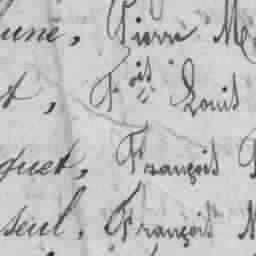 une, Pierre M
t, F.ois Louis
quet, François
seul, François M